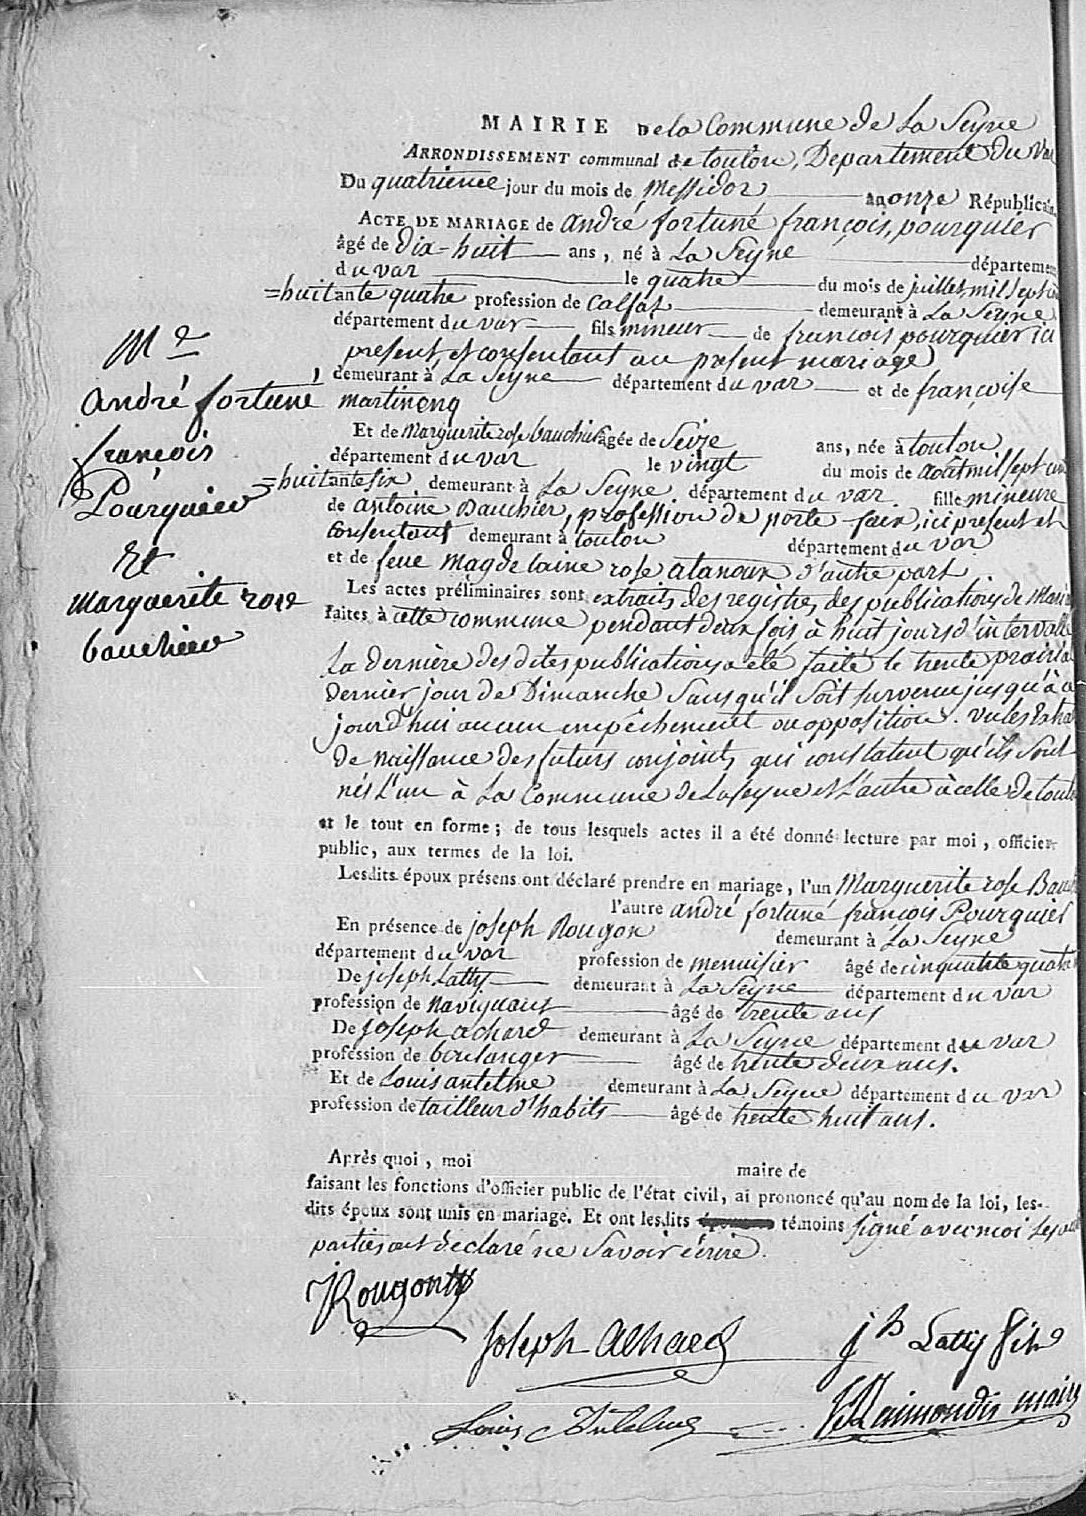 MAIRIE De la Commune de La Seyne
ARRONDISSEMENT communal de toulon, Departement du Var
Du quatrieme jour du mois de Messidor an onze Républicain
ACTE DE MARIAGE de andré fortuné françois, pourquier
âgé de dix-huit ans, né à La Seyne département
du var le quatre du mois de juillet, mil sept cen
=huitante quatre profession de Calfat demeurant à La Seyne
département du var fils mineur de françois pourquier ici
present, et consentant au present mariage
demeurant à La Seyne département du var et de françoise
martinenq
Md
andré fortuné
françois
Pourquier
Et
marguerite rose
bauchier
Et de Marguerite rose bauchier agée de Seize ans, née à toulon
département du var le vingt du mois de aout mil sept cen
=huitante six demeurant à La Seyne département du var fille mineure
de antoine Bauchier, profession de porte-faix, ici present et
consentant demeurant à toulon département du var
et de feue magdelaine rose atanoux d'autre part
Les actes préliminaires sont extraits des registres des publications de Mari
faites à cette commune pendant deux fois à huit jours d'intervalle
La dernière des dites publications a été faite le trente prairial
dernier jour de Dimanche Sans qu'il soit survenu jusqu'à ce
jourd'hui aucun empêchement ou opposition. Vu les Extrai
de naissance des futurs conjoints qui constatent qu'ils sont
nés l'un à La Commune de La Seyne et L'autre à celle de toulon
et le tout en forme; de tous lesquels actes il a été donné lecture par moi, officier
public, aux termes de la loi.
Lesdits époux présens ont déclaré prendre en mariage, l'un Marguerite rose Bauch
l'autre andré fortuné françois Pourquier
En présence de joseph Rougon demeurant à La Seyne
département du var profession de menuisier âgé de cinquante quatre
De joseph Latty demeurant à La Seyne département du var
profession de Naviguant âgé de trente ans
De Joseph achard demeurant à La Seyne département du var
profession de boulanger âgé de trente deux ans.
Et de Louis antelme demeurant à La Seyne département du var
profession de tailleur d'habits âgé de trente huit ans.
Après quoi, moi maire de
faisant les fonctions d'officier public de l'état civil, ai prononcé qu'au nom de la loi, les-
dits époux sont unis en mariage. Et ont lesdits témoins signé avec moi Les
parties ont declaré ne Savoir écrire.
JRougon
Joseph Achard
jh Latty fils
Louis Antelme
Raimondis maire